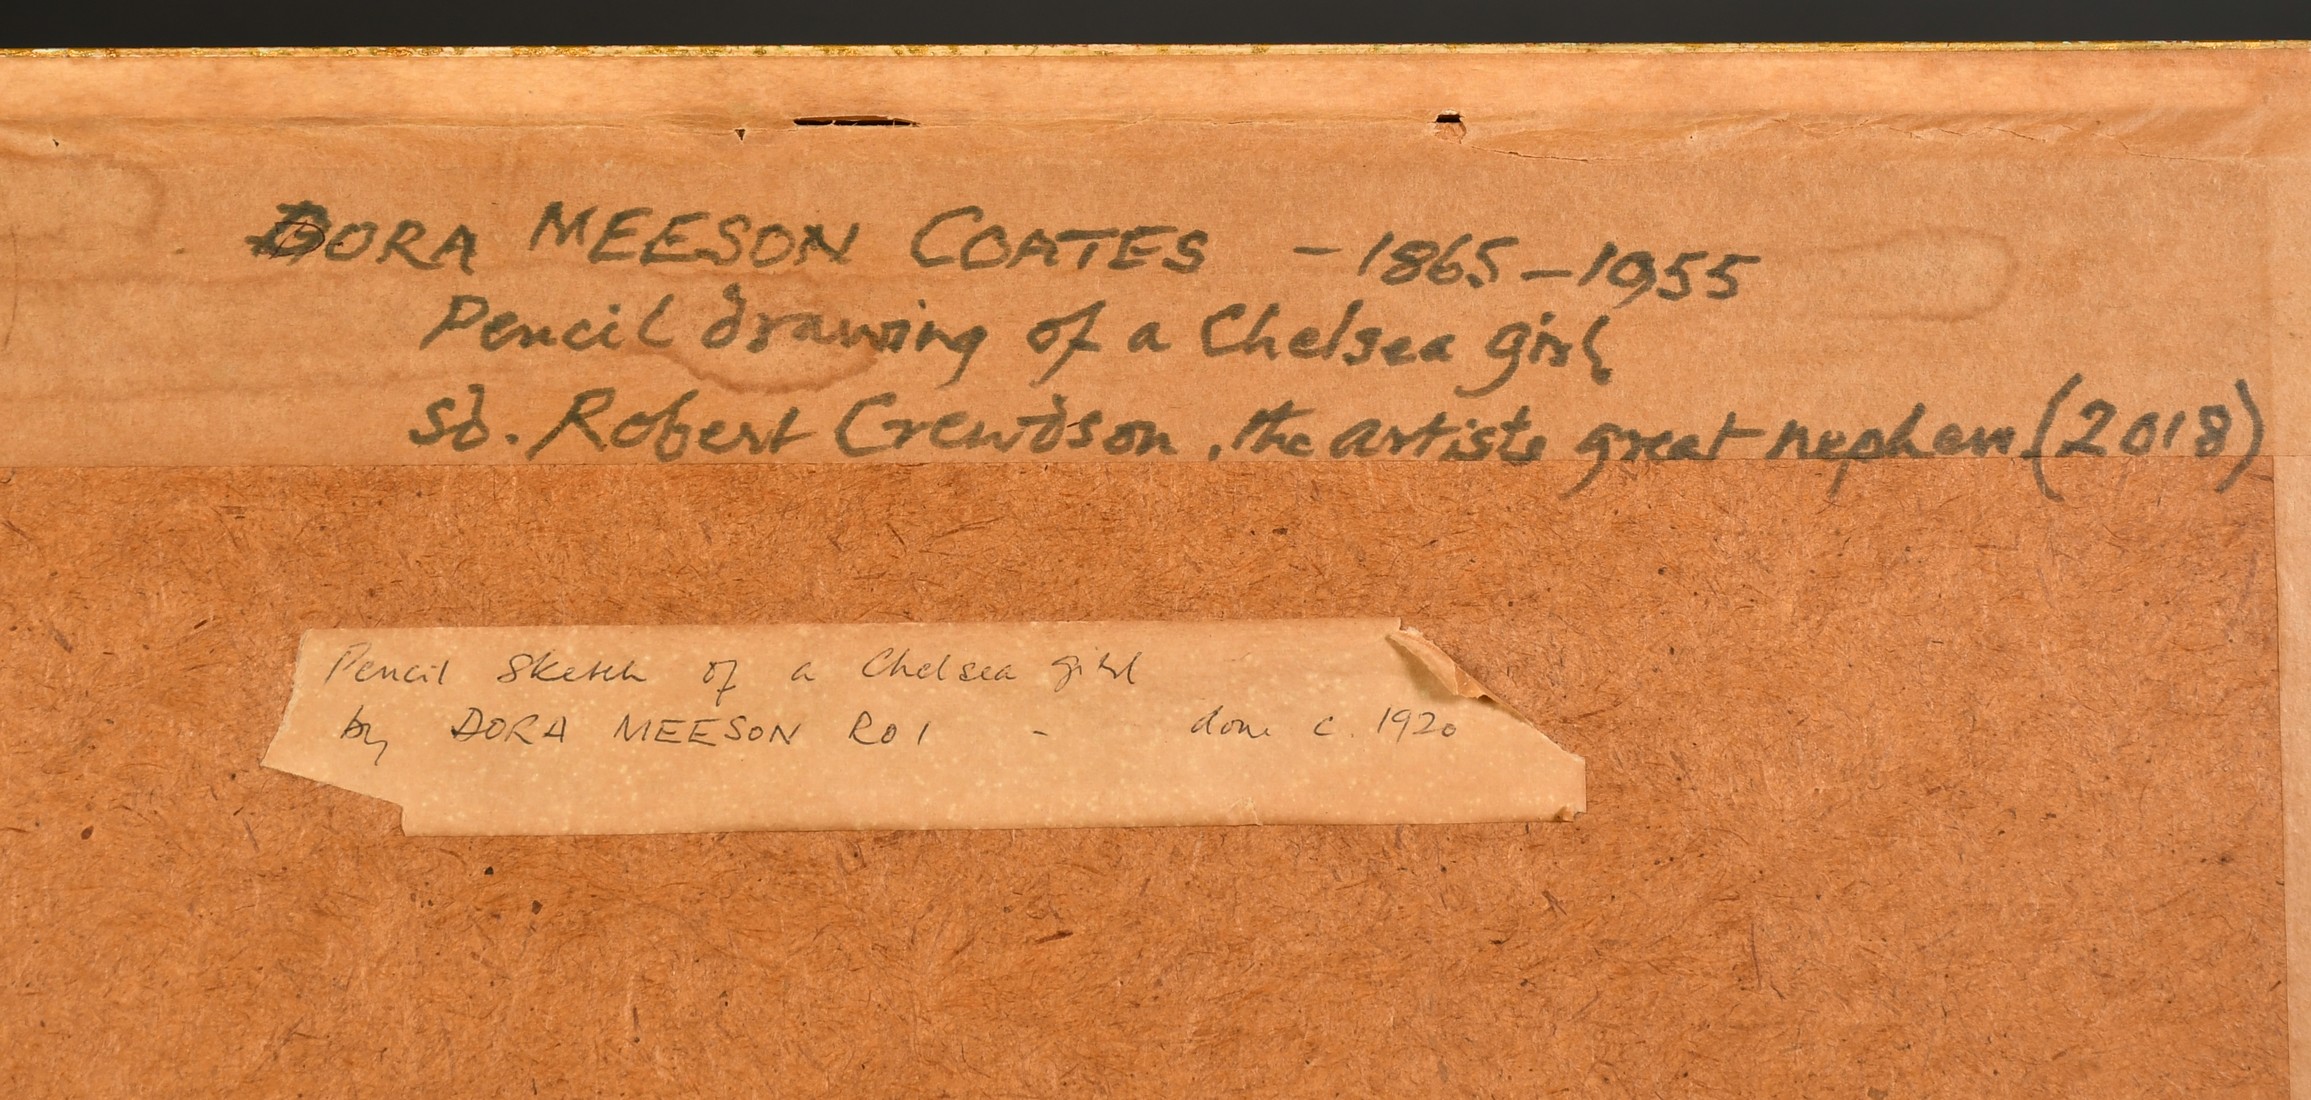 DORA MEESON COATES - 1865-1955
Pencil drawing of a Chelsea girl
sd. Robert Crewdson, the artists great nephew (2018)
Pencil sketch of a Chelsea girl
by DORA MEESON ROI - done c. 1920